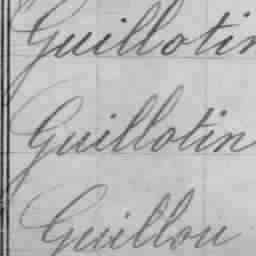 Guillotin
Guillotin
Guillou